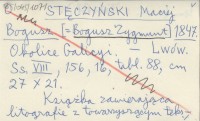 STĘCZYŃSKI Maciej
Bogusz [= Bogusz Zygmunt] 1847.
Okolice Galicyi. — Lwów.
Ss. VIII, 156, 16, tabl. 88, cm
27 × 21.
Książka zawierająca
litografie z towarzyszącym